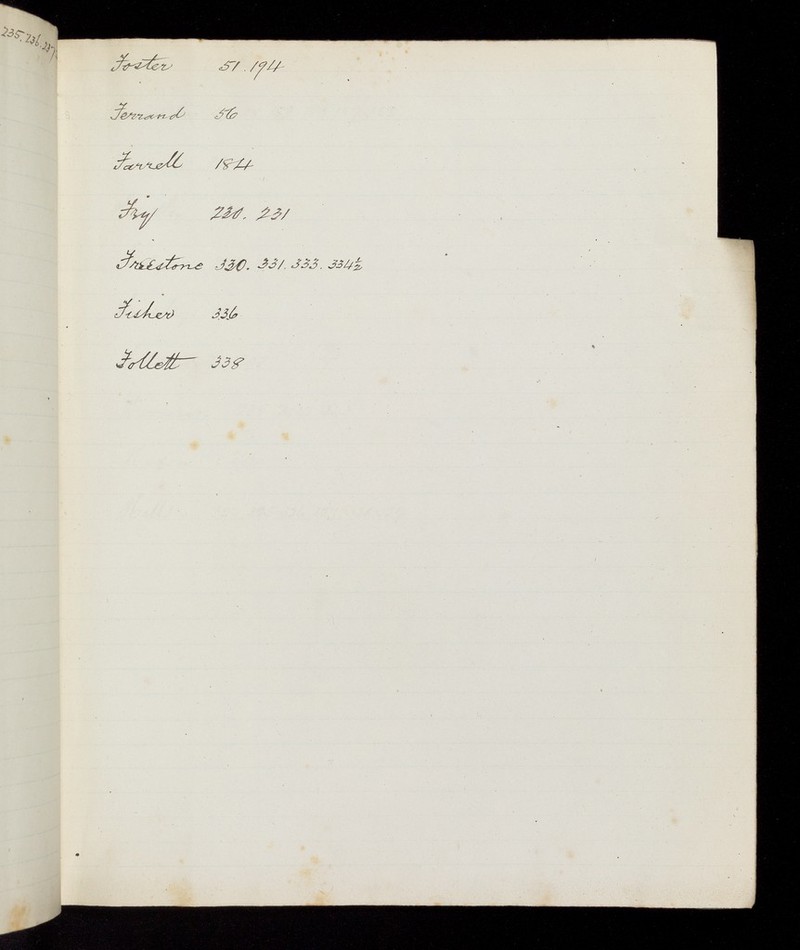 235. 236. 237
Foster 51. 194
Ferrand 56
Farrell 184
Fry 230. 231
Freestone 330. 331. 333. 334½
Fisher 336
Follett 338